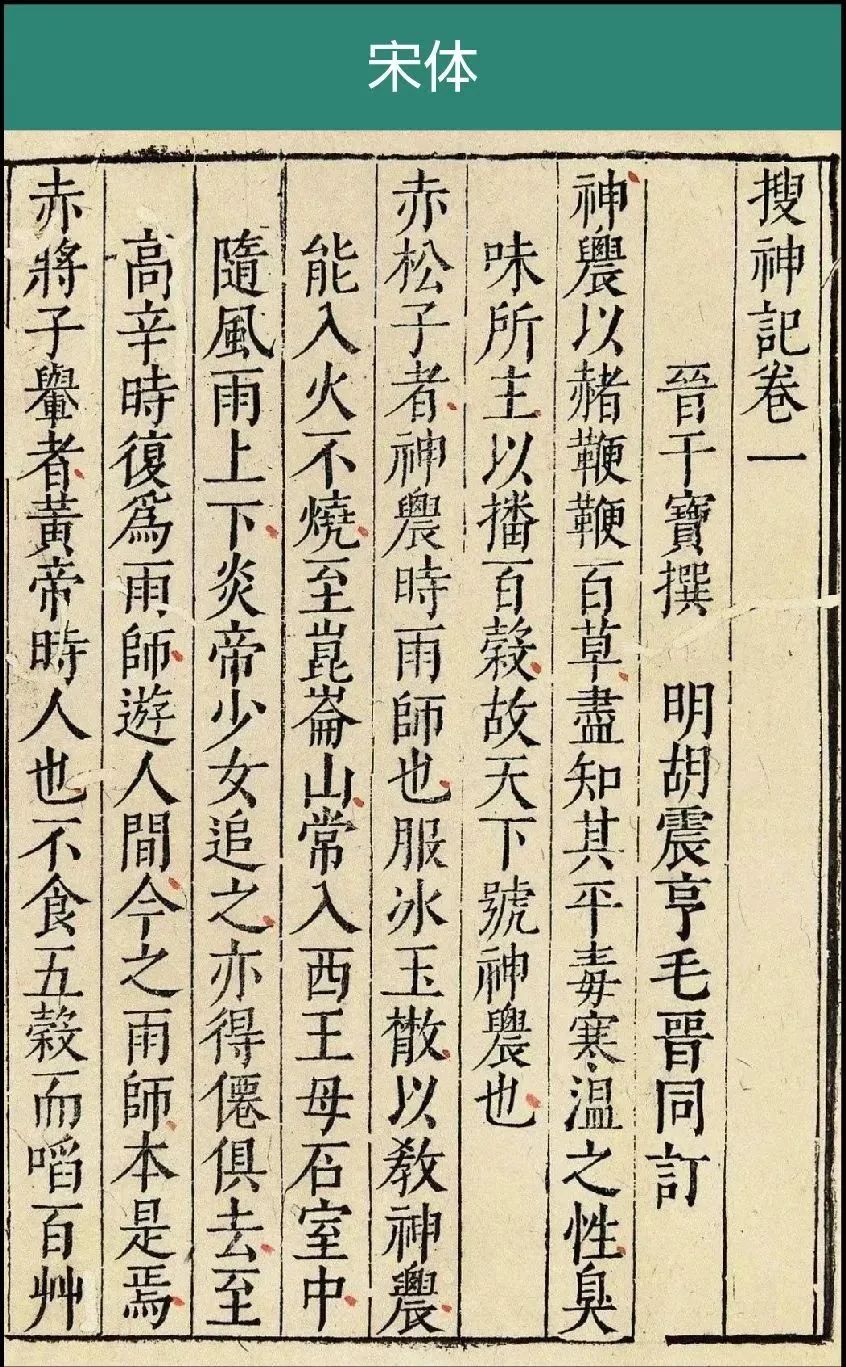 宋体
搜神記卷一
晉干寶撰 明胡震亨毛晉同訂
神農以赭鞭鞭百草盡知其平毒寒溫之性臭
味所主以播百穀故天下號神農也
赤松子者神農時雨師也服冰玉散以教神農
能入火不燒至崑崙山常入西王母石室中
隨風雨上下炎帝少女追之亦得僊俱去至
高辛時復爲雨師遊人間今之雨師本是焉
赤將子轝者黃帝時人也不食五穀而啗百艸